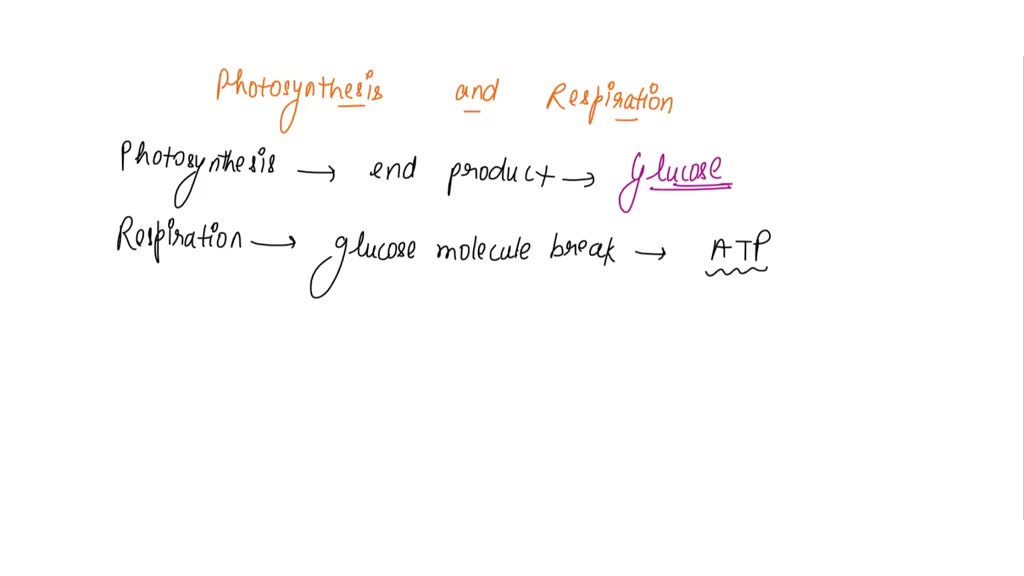 Photosynthesis and Respiration
Photosynthesis → end product → Glucose
Respiration → glucose molecule break → ATP